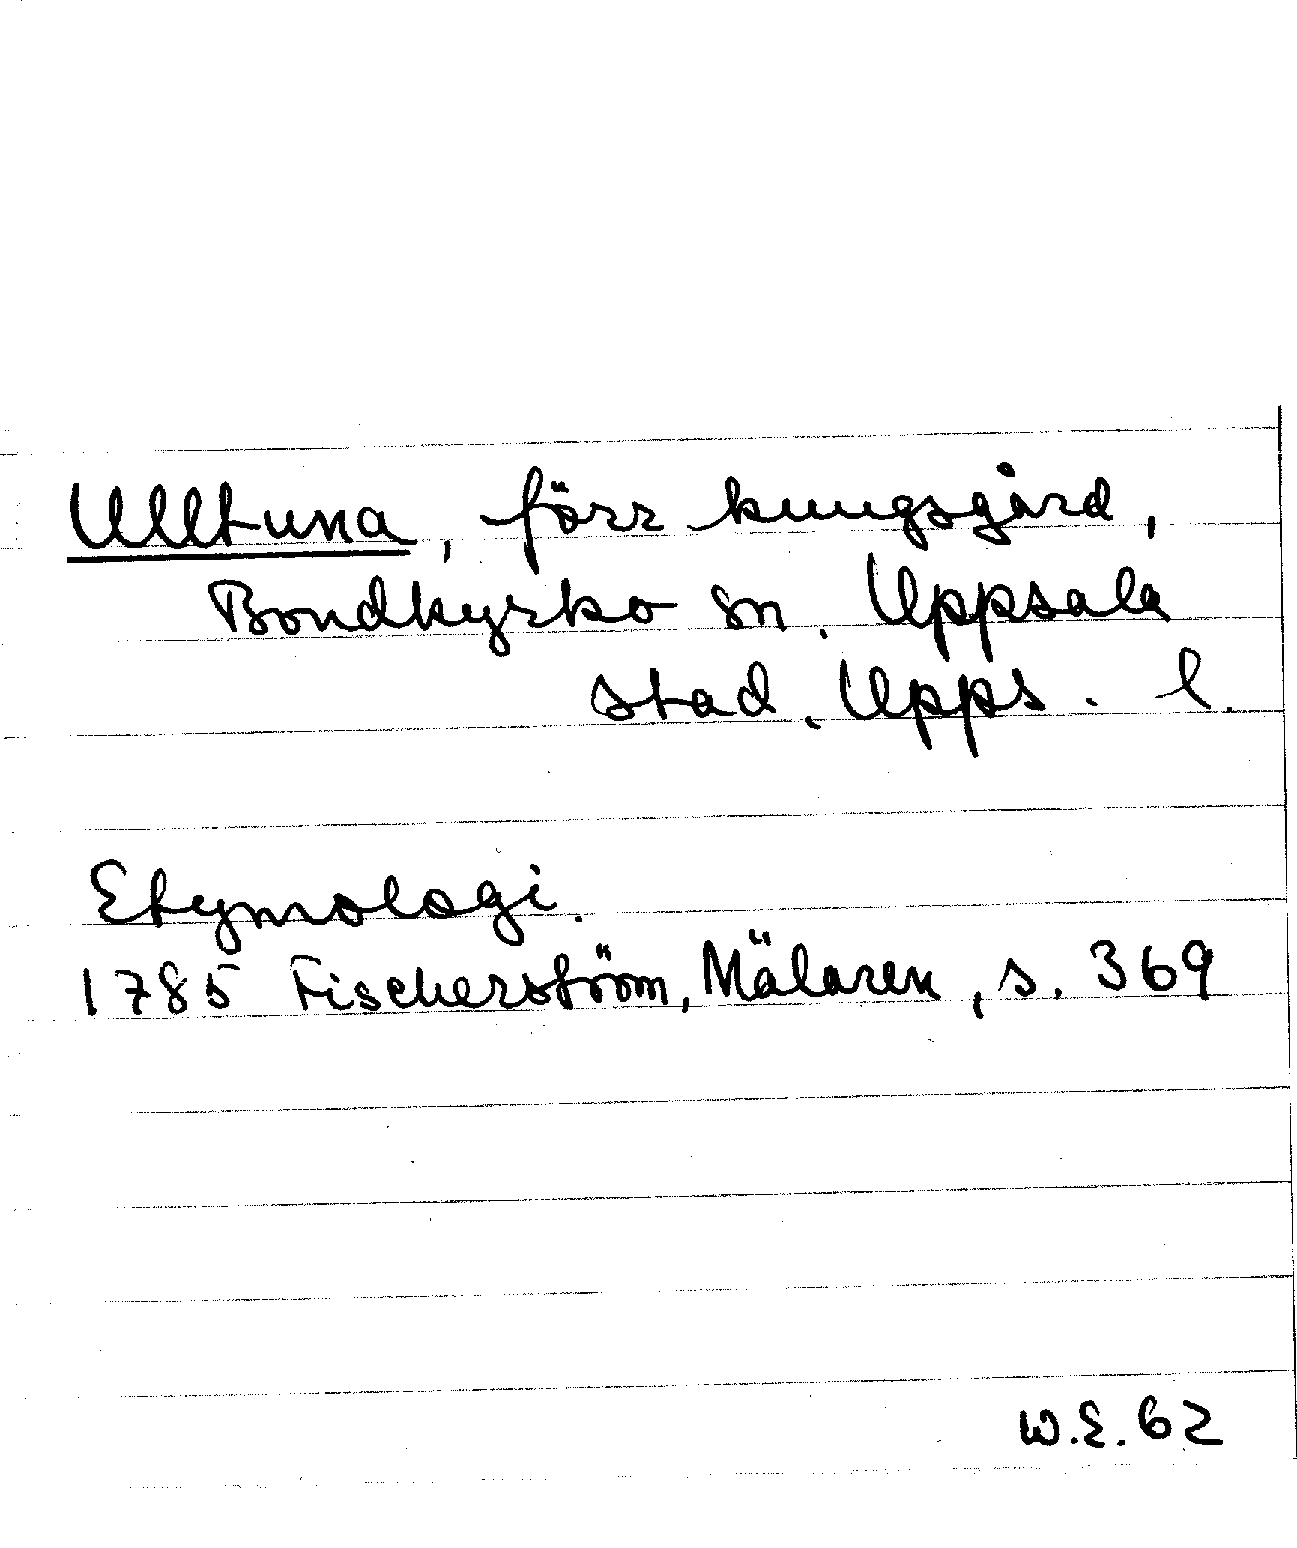 Ulltuna, förr kungsgård,
Bondkyrko sn, Uppsala
stad, Upps. l.
Etymologi.
1785 Fischerström, Mälaren, s. 369
W.E. 62